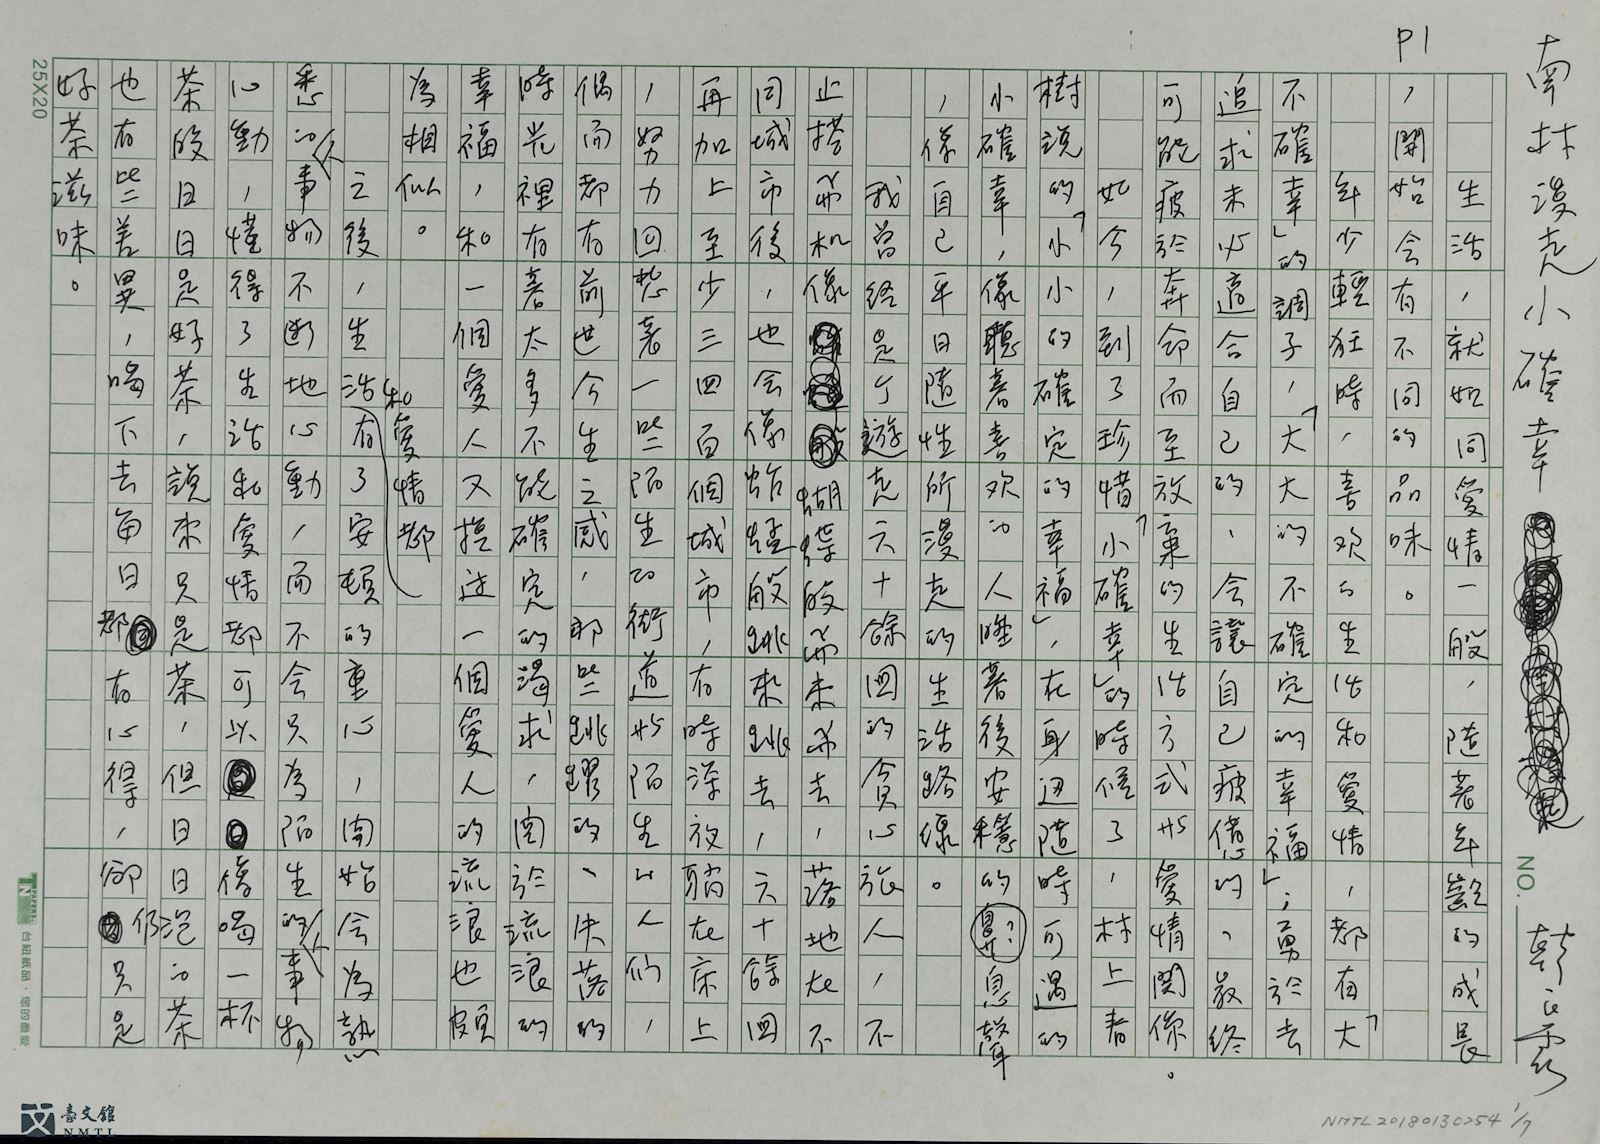 P1
南村漫走小確幸
生活，就如同愛情一般，隨著年齡的成長
，開始会有不同的品味。
年少輕狂時，喜欢的生活和愛情，都有「大
不確幸」的調子，「大大的不確定的幸福」；勇於去
追求未必適合自己的、会讓自己疲憊的、最終
可能疲於奔命而至放棄的生活方式與愛情関係。
如今，到了珍惜「小確幸」的時候了，村上春
樹說的「小小的確定的幸福」，在身边隨時可遇的
小確幸，像聽著喜欢的人睡著後安穩的鼻息聲
，像自己平日隨性所漫走的生活路線。
我曾經是个遊走六十餘國的貪心旅人，不
止搭飛机像蝴蝶般飛來飛去，落地在不
同城市後，也会像蛤蟆般跳來跳去，六十餘國
再加上至少三四百個城市，有時深夜躺在床上
，努力回想著一些陌生的街道與陌生的人們，
偶而都有前世今生之感，那些跳躍的、失落的
時光裡有著太多不能確定的渴求，関於流浪的
幸福，和一個愛人又換过一個愛人的流浪也頗
為相似。
之後，生活和愛情都有了安頓的重心，開始会為熟
悉的人事物不斷地心動，而不会只為陌生的人事物
心動，懂得了生活和愛情都可以像喝一杯
茶般日日是好茶，說來只是茶，但日日泡的茶
也有些差異，喝下去每日都有心得，卻仍只是
好茶滋味。
25X20
NO.
台紐紙品
臺文館
NMTL
NMTL20180130254 1/7